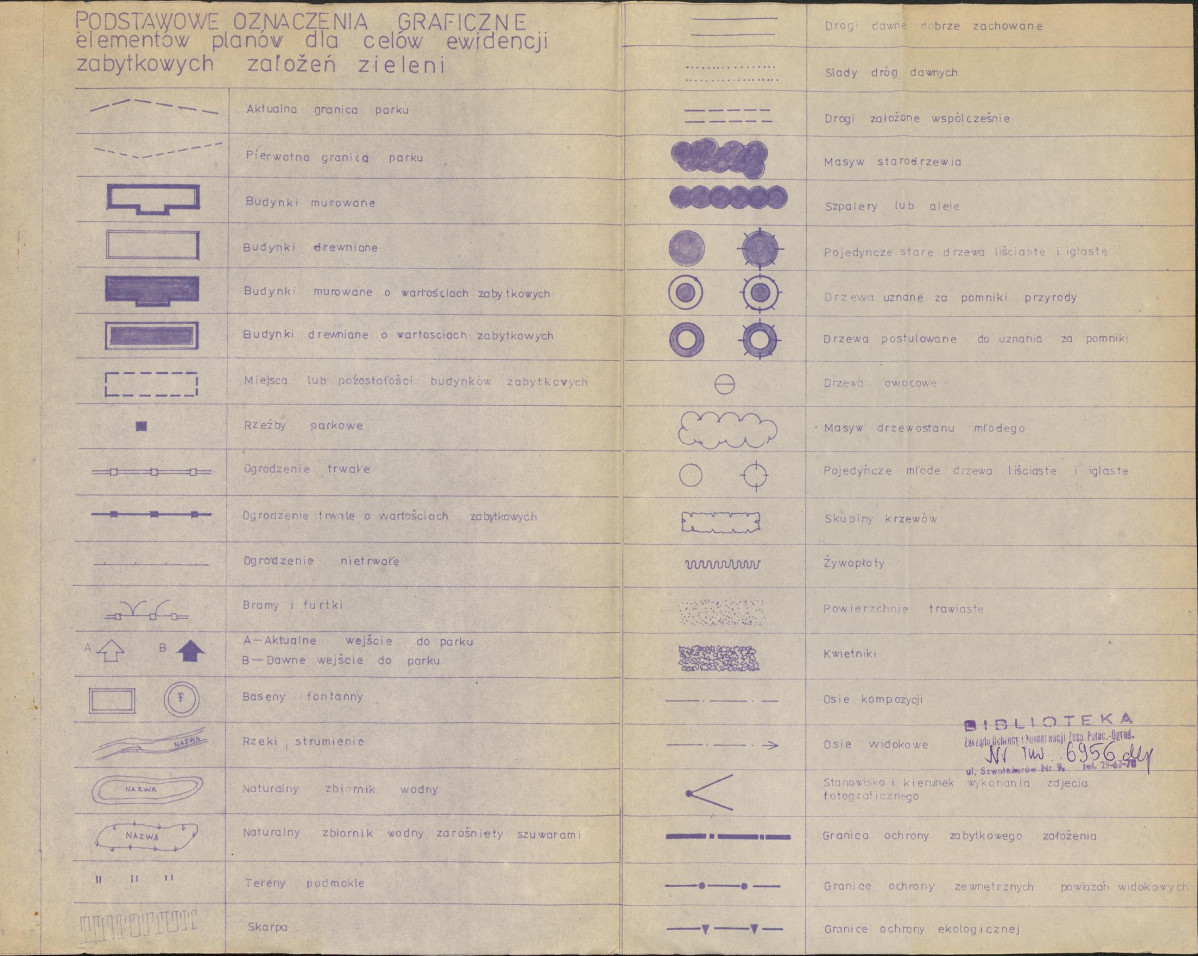 PODSTAWOWE OZNACZENIA GRAFICZNE
elementów planów dla celów ewidencji
zabytkowych założeń zieleni
Aktualna granica parku
Pierwotna granica parku
Budynki murowane
Budynki drewniane
Budynki murowane o wartościach zabytkowych
Budynki drewniane o wartosciach zabytkowych
Miejsca lub pozostałości budynków zabytkowych
Rzeźby parkowe
Ogrodzenie trwałe
Ogrodzenie trwałe o wartościach zabytkowych
Ogrodzenie nietrwałe
Bramy i furtki
A B
A—Aktualne wejście do parku
B—Dawne wejście do parku
F
Baseny fontanny
NAZWA
Rzeki, strumienie
NAZWA
Naturalny zbiornik wodny
NAZWA
Naturalny zbiornik wodny zarośnięty szuwarami
Tereny podmokłe
Skarpa
Drogi dawne dobrze zachowane
Slady dróg dawnych
Drogi założone współcześnie
Masyw starodrzewia
Szpalery lub aleje
Pojedyncze stare drzewa liściaste i iglaste
Drzewa uznane za pomniki przyrody
Drzewa postulowane do uznania za pomniki
Drzewa owocowe
Masyw drzewostanu młodego
Pojedyńcze młode drzewa liściaste i iglaste
Skupiny krzewów
Żywopłoty
Powierzchnie trawiaste
Kwietniki
Osie kompozycji
Osie widokowe
BIBLIOTEKA
Nr inw. 6956
ul. Szwoleżerów Nr 9, tel.
Stanowisko i kierunek wykonania zdjęcia
fotograficznego
Granica ochrony zabytkowego założenia
Granice ochrony zewnętrznych powiązań widokowych
Granice ochrony ekologicznej